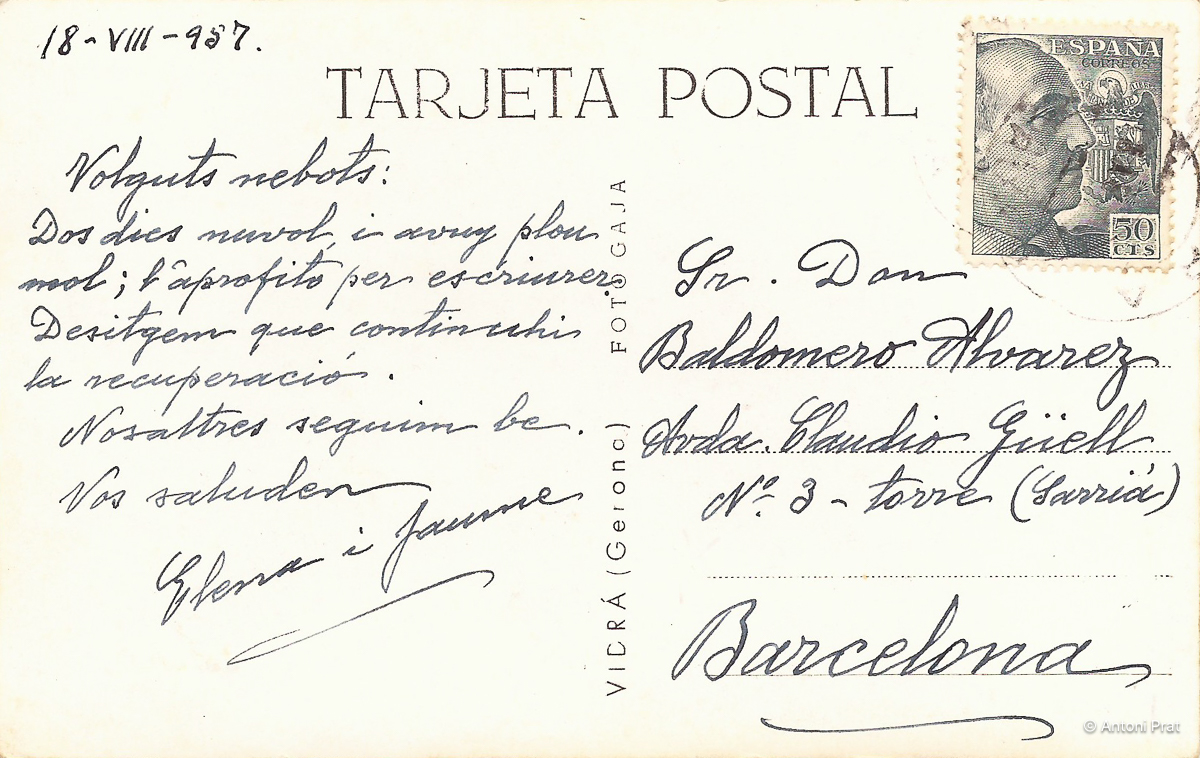 18-VIII-957.
TARJETA POSTAL
ESPAÑA
CORREOS
50
CTS
Volguts nebots:
Dos dies nuvol, i avuy plou
mol; l'âprofito per escriurer.
Desitgem que continuhi
la recuperació.
Nosaltres seguim be.
Vos saluden
Elena i Jaume
VIDRÁ (Gerona) FOTO GAJA
Sr. Don
Baldomero Alvarez
Avda. Claudio Güell
Nº 3 - torre (Sarriá)
Barcelona
© Antoni Prat